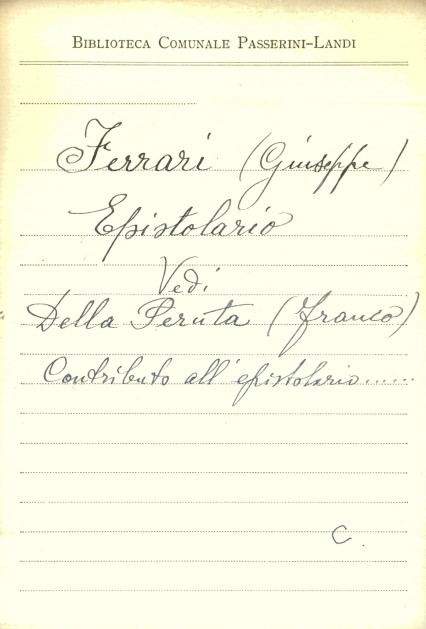 BIBLIOTECA COMUNALE PASSERINI-LANDI
Ferrari (Giuseppe)
Epistolario
Vedi
Della Peruta (Franco)
Contributo all'epistolario......
C.